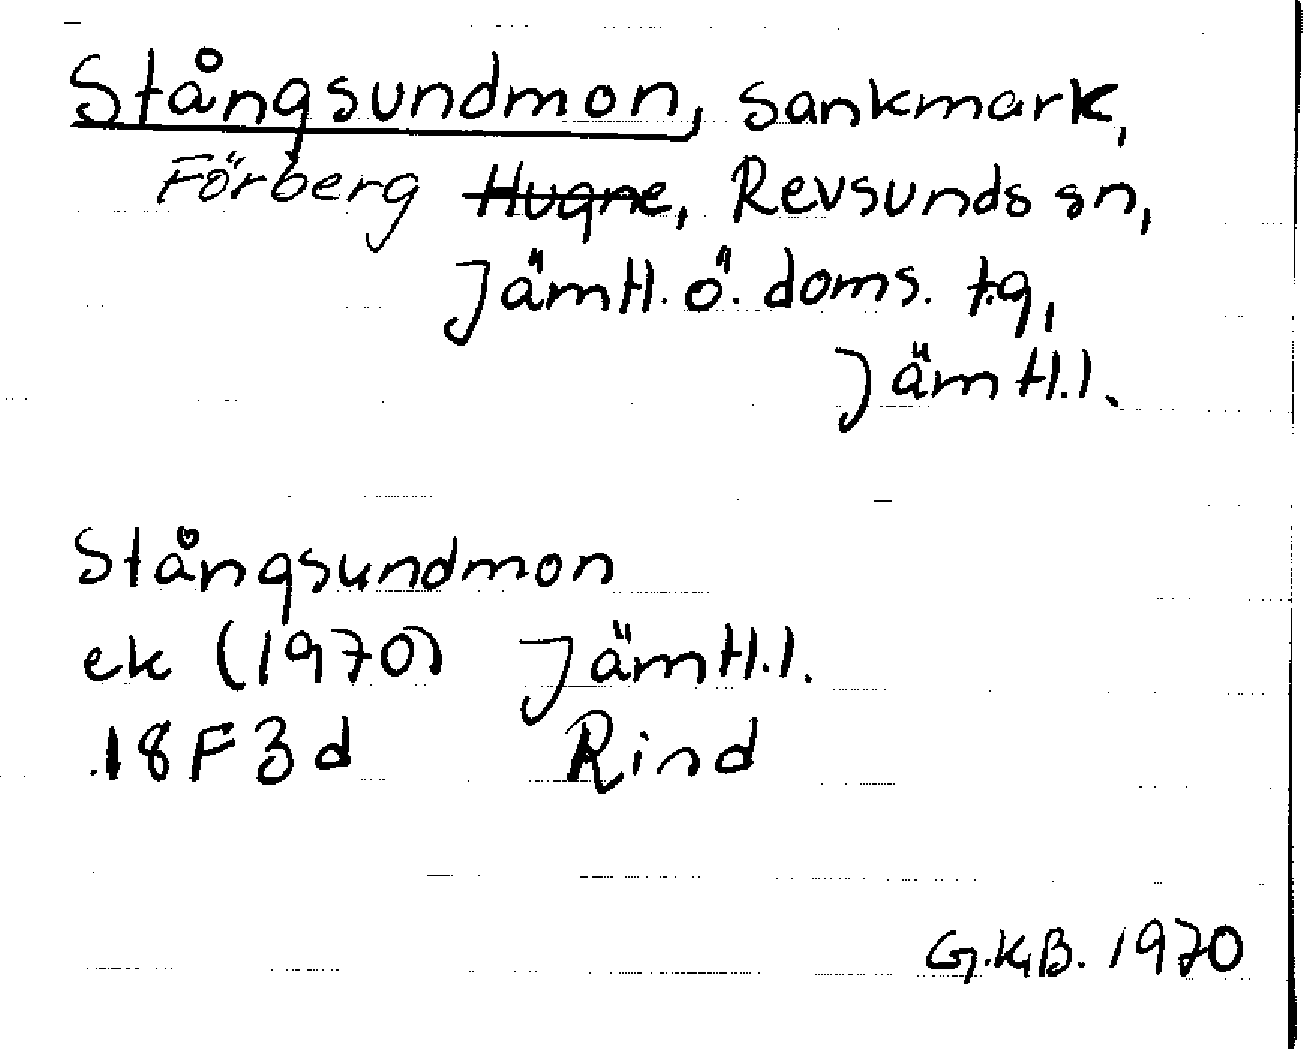 Stångsundmon, sankmark,
Förberg Hugne, Revsunds sn,
Jämtl. ö. doms. tg,
Jämtl.l.
Stångsundmon
ek (1970) Jämtl.l.
18F3d Rind
G.K.B. 1970